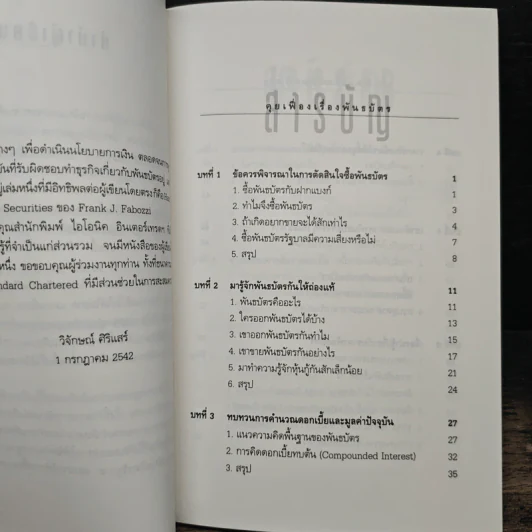 างๆ เพื่อดำเนินนโยบายการเงิน ตลอดจน
บันที่รับผิดชอบทำธุรกิจเกี่ยวกับพันธบัตรอยู่
ญ่เล่มหนึ่งที่มีอิทธิพลต่อผู้เขียนโดยตรงก็คือ
Securities ของ Frank J. Fabozzi
คุณสำนักพิมพ์ ไอโอนิค อินเตอร์เทรดฯ
รู้ที่จำเป็นแก่ส่วนรวม จนมีหนังสือของผู้เขียน
หนึ่ง ขอขอบคุณผู้ร่วมงานทุกท่าน ทั้งที่
ndard Chartered ที่มีส่วนช่วยในการสะสม
วิจักษณ์ ศิริแสร์
1 กรกฎาคม 2542
คุยเฟื่องเรื่องพันธบัตร
สารบัญ
บทที่ 1 ข้อควรพิจารณาในการตัดสินใจซื้อพันธบัตร 1
1. ซื้อพันธบัตรกับฝากแบงก์ 1
2. ทำไมจึงซื้อพันธบัตร 3
3. ถ้าเกิดอยากขายจะได้สักเท่าไร 4
4. ซื้อพันธบัตรรัฐบาลมีความเสี่ยงหรือไม่ 7
5. สรุป 8
บทที่ 2 มารู้จักพันธบัตรกันให้ถ่องแท้ 11
1. พันธบัตรคืออะไร 11
2. ใครออกพันธบัตรได้บ้าง 13
3. เขาออกพันธบัตรกันทำไม 15
4. เขาขายพันธบัตรกันอย่างไร 17
5. มาทำความรู้จักหุ้นกู้กันสักเล็กน้อย 21
6. สรุป 24
บทที่ 3 ทบทวนการคำนวณดอกเบี้ยและมูลค่าปัจจุบัน 27
1. แนวความคิดพื้นฐานของพันธบัตร 27
2. การคิดดอกเบี้ยทบต้น (Compounded Interest) 32
3. สรุป 35